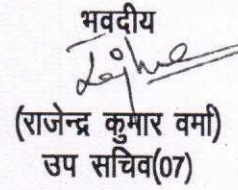 भवदीय
(राजेन्द्र कुमार वर्मा)
उप सचिव(07)